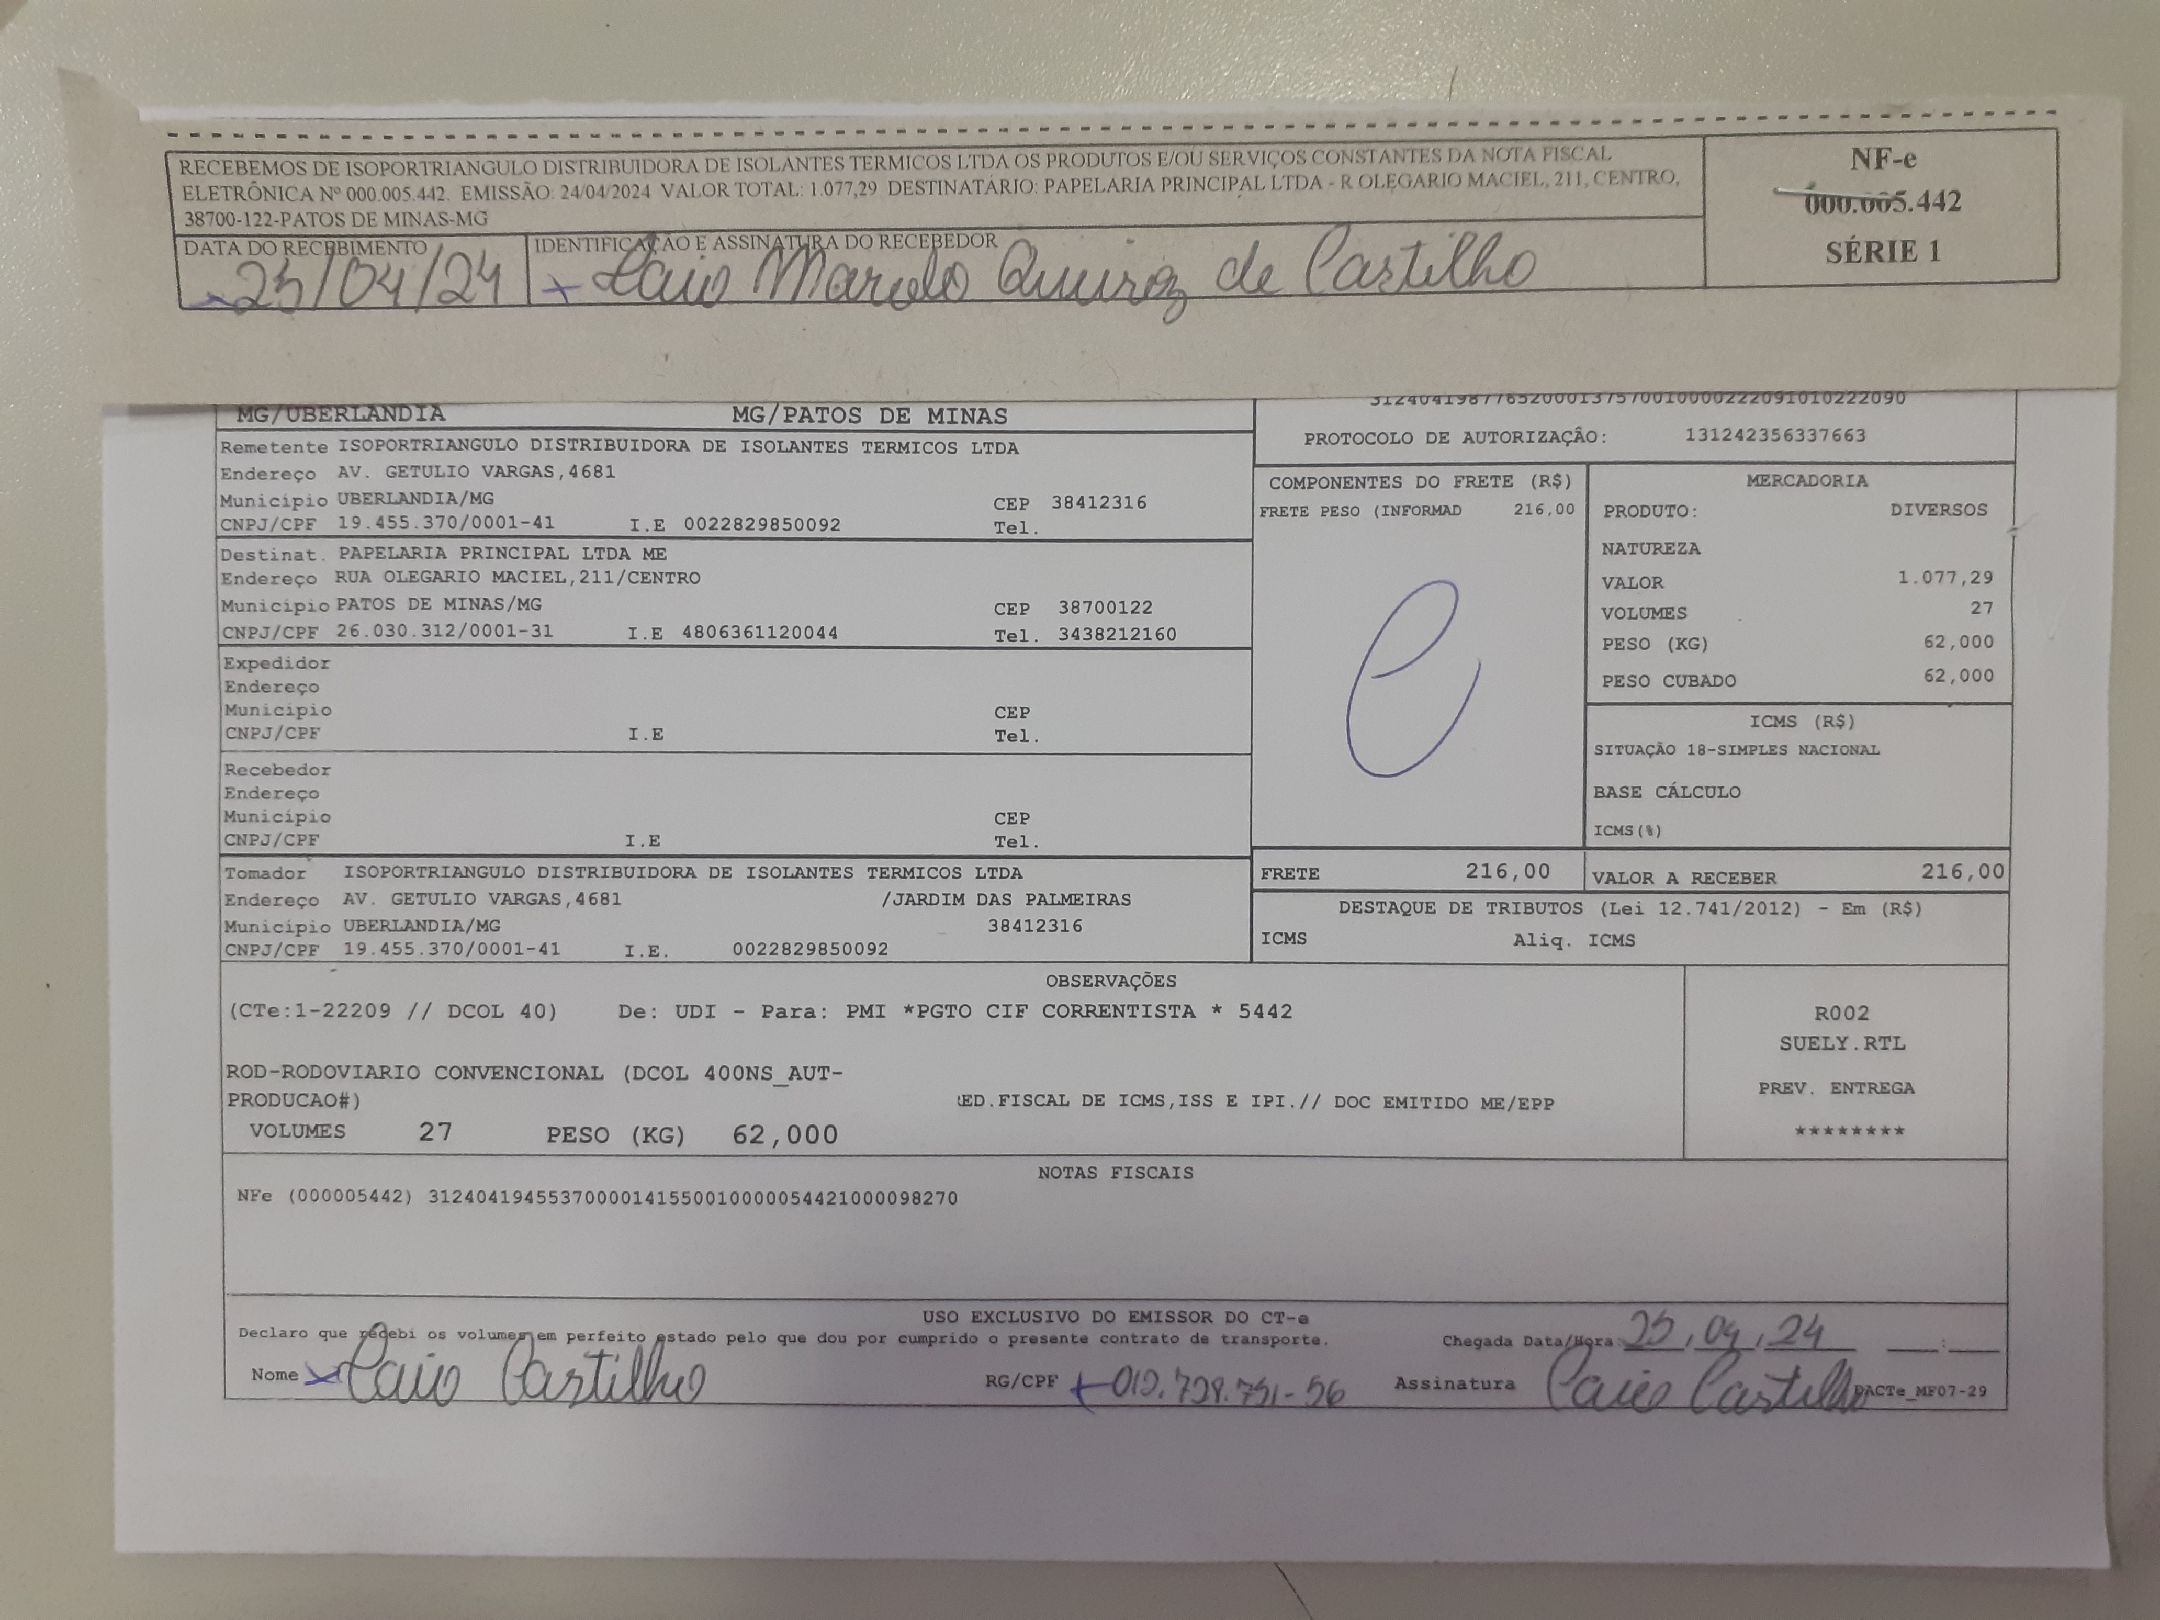 RECEBEMOS DE ISOPORTRIANGULO DISTRIBUIDORA DE ISOLANTES TERMICOS LTDA OS PRODUTOS E/OU SERVIÇOS CONSTANTES DA NOTA FISCAL
ELETRÔNICA Nº 000.005.442. EMISSÃO: 24/04/2024 VALOR TOTAL: 1.077,29 DESTINATÁRIO: PAPELARIA PRINCIPAL LTDA - R OLEGARIO MACIEL, 211, CENTRO,
38700-122-PATOS DE MINAS-MG
NF-e
000.005.442
SÉRIE 1
DATA DO RECEBIMENTO
25/04/24
IDENTIFICAÇÃO E ASSINATURA DO RECEBEDOR
Caio Marcelo Queiroz de Castilho
MG/UBERLANDIA MG/PATOS DE MINAS
PROTOCOLO DE AUTORIZAÇÃO: 131242356337663
Remetente ISOPORTRIANGULO DISTRIBUIDORA DE ISOLANTES TERMICOS LTDA
Endereço AV. GETULIO VARGAS,4681
Município UBERLANDIA/MG CEP 38412316
CNPJ/CPF 19.455.370/0001-41 I.E 0022829850092 Tel.
Destinat. PAPELARIA PRINCIPAL LTDA ME
Endereço RUA OLEGARIO MACIEL,211/CENTRO
Município PATOS DE MINAS/MG CEP 38700122
CNPJ/CPF 26.030.312/0001-31 I.E 4806361120044 Tel. 3438212160
Expedidor
Endereço
Município CEP
CNPJ/CPF I.E Tel.
Recebedor
Endereço
Município CEP
CNPJ/CPF I.E Tel.
Tomador ISOPORTRIANGULO DISTRIBUIDORA DE ISOLANTES TERMICOS LTDA
Endereço AV. GETULIO VARGAS,4681 /JARDIM DAS PALMEIRAS
Município UBERLANDIA/MG 38412316
CNPJ/CPF 19.455.370/0001-41 I.E. 0022829850092
COMPONENTES DO FRETE (R$)
FRETE PESO (INFORMAD 216,00
MERCADORIA
PRODUTO: DIVERSOS
NATUREZA
VALOR 1.077,29
VOLUMES 27
PESO (KG) 62,000
PESO CUBADO 62,000
ICMS (R$)
SITUAÇÃO 18-SIMPLES NACIONAL
BASE CÁLCULO
ICMS(%)
FRETE 216,00 VALOR A RECEBER 216,00
DESTAQUE DE TRIBUTOS (Lei 12.741/2012) - Em (R$)
ICMS Aliq. ICMS
OBSERVAÇÕES
(CTe:1-22209 // DCOL 40) De: UDI - Para: PMI *PGTO CIF CORRENTISTA * 5442
ROD-RODOVIARIO CONVENCIONAL (DCOL 400NS_AUT-
PRODUCAO#) ED.FISCAL DE ICMS,ISS E IPI.// DOC EMITIDO ME/EPP
VOLUMES 27 PESO (KG) 62,000
R002
SUELY.RTL
PREV. ENTREGA
********
NOTAS FISCAIS
NFe (000005442) 31240419455370000141550010000054421000098270
USO EXCLUSIVO DO EMISSOR DO CT-e
Declaro que recebi os volumes em perfeito estado pelo que dou por cumprido o presente contrato de transporte. Chegada Data/Hora 25,04,24 __:__
Nome Caio Castilho RG/CPF Assinatura Caio Castilho DACTe_MF07-29